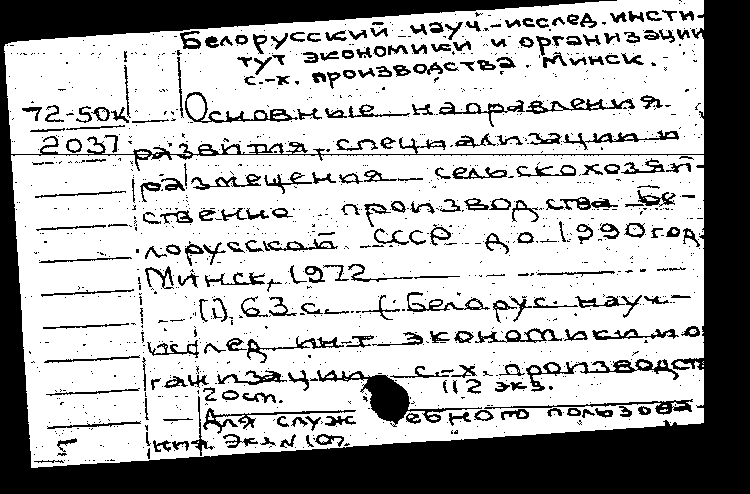 Белорусский науч.-исслед. инсти-
тут экономики и организации
с.-х. производства. Минск.
72-50к Основные направления
2037 развития, специализации и
размещения сельскохозяй-
ственно производства Бе-
лорусской СССР до 1990 год.
Минск, 1972
(1), 63 с. (Белорус. науч.-
исслед ин-т экономики и о
ганизации с.-х. производств
20 см. 112 экз.
Для служебного пользова-
ния. Экз N 107.